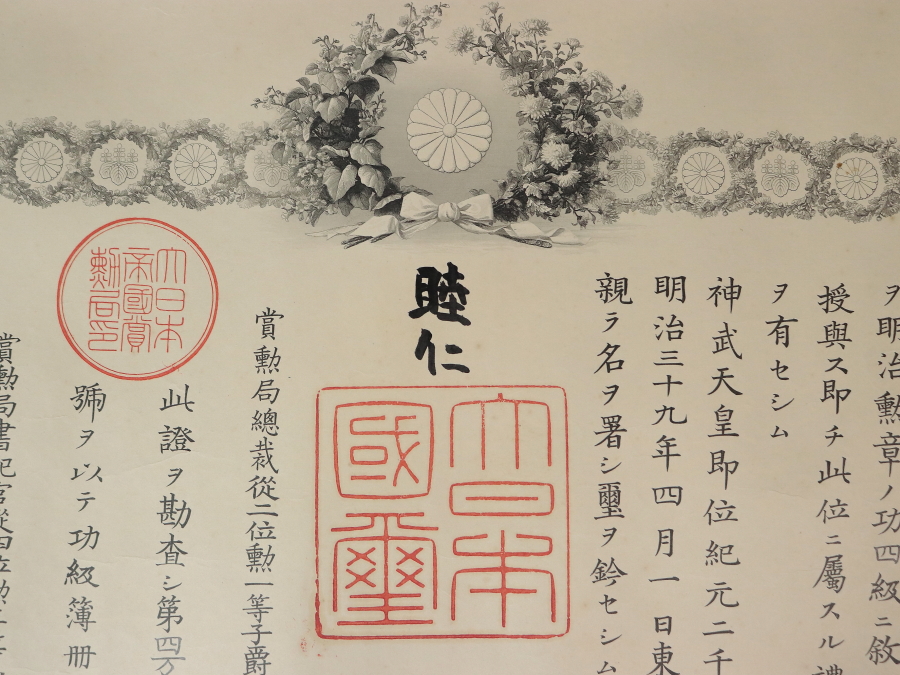 ヲ明治勲章ノ功四級ニ敘
授與ス即チ此位ニ屬スル禮
ヲ有セシム
神武天皇即位紀元二千
明治三十九年四月一日東
親ラ名ヲ署シ璽ヲ鈐セシム
睦仁
大日本國璽
賞勲局總裁從二位勲一等子爵
大日本帝國賞勲局印
此證ヲ勘査シ第四万
號ヲ以テ功級簿冊
賞勲局書記官從四位勲